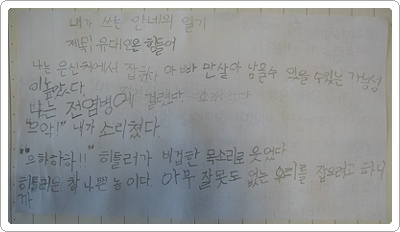 내가 쓰는 안네의 일기
제목: 유대인은 힘들어
나는 은신처에서 잡히고 아빠만 살아 남을수 있을 수있는 가능성
이높았다.
나는 전염병에 걸렸다.
"으악!" 내가 소리쳤다.
"으하하하!!" 히틀러가 비겁한 목소리로 웃었다
히틀러은 참 나쁜 놈이다. 아무 잘못도 없는 우리를 잡으려고 하니
까